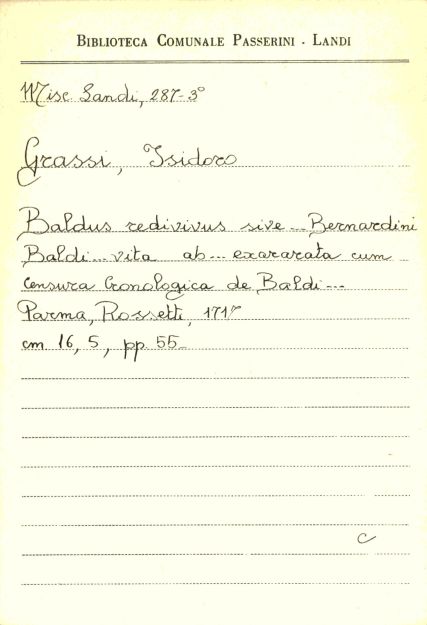 BIBLIOTECA COMUNALE PASSERINI - LANDI
Misc. Landi, 287-3°
Grassi, Isidoro
Baldus redivivus sive... Bernardini
Baldi... vita ab... exararata cum
censura cronologica de Baldi...
Parma, Rossetti, 1717
cm. 16,5, pp. 55
c